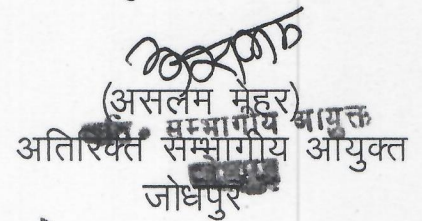 (असलम मेहर)
सम्भागीय आयुक्त
अतिरिक्त सम्भागीय आयुक्त
जोधपुर